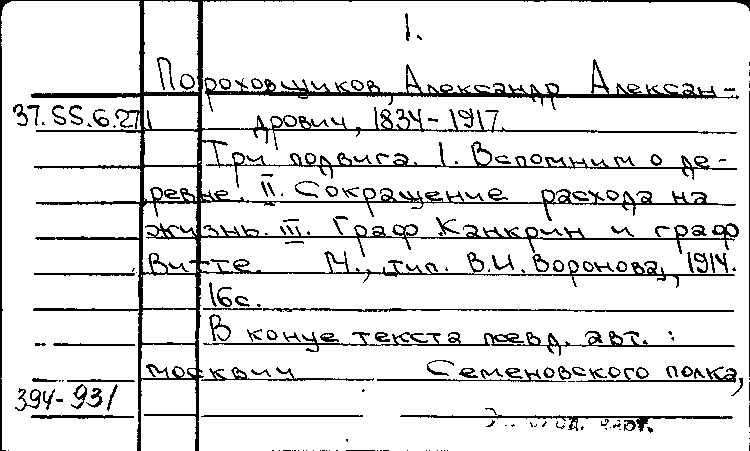 1.
Пороховщиков, Александр Алексан-
37.55.6.271 дрович, 1834-1917.
Три подвига. I. Вспомним о де-
ревне. II. Сокращение расхода на
жизнь. III. Граф Канкрин и граф
Витте. М., тип. В.И. Воронова, 1914.
16с.
В конце текста псевд. авт.:
москвич Семеновского полка,
394-931